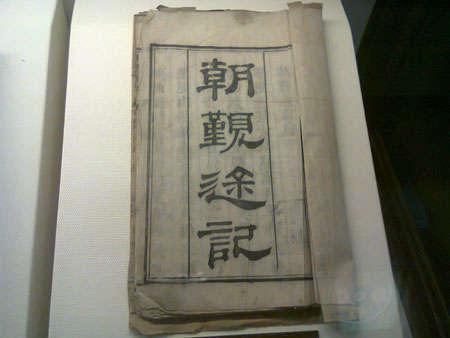 朝覲途記